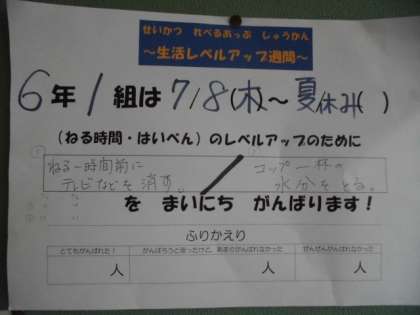 せいかつ れべるあっぷ しゅうかん
～生活レベルアップ週間～
6年1組は7/8(木)～夏休み( )
(ねる時間・はいべん)のレベルアップのために
ねる一時間前に
テレビなどを消す。
コップ一杯の
水分をとる。
を まいにち がんばります！
ふりかえり
とてもがんばれた！ がんばろうと思ったけど、あまりがんばれなかった ぜんぜんがんばれなかった
人 人 人